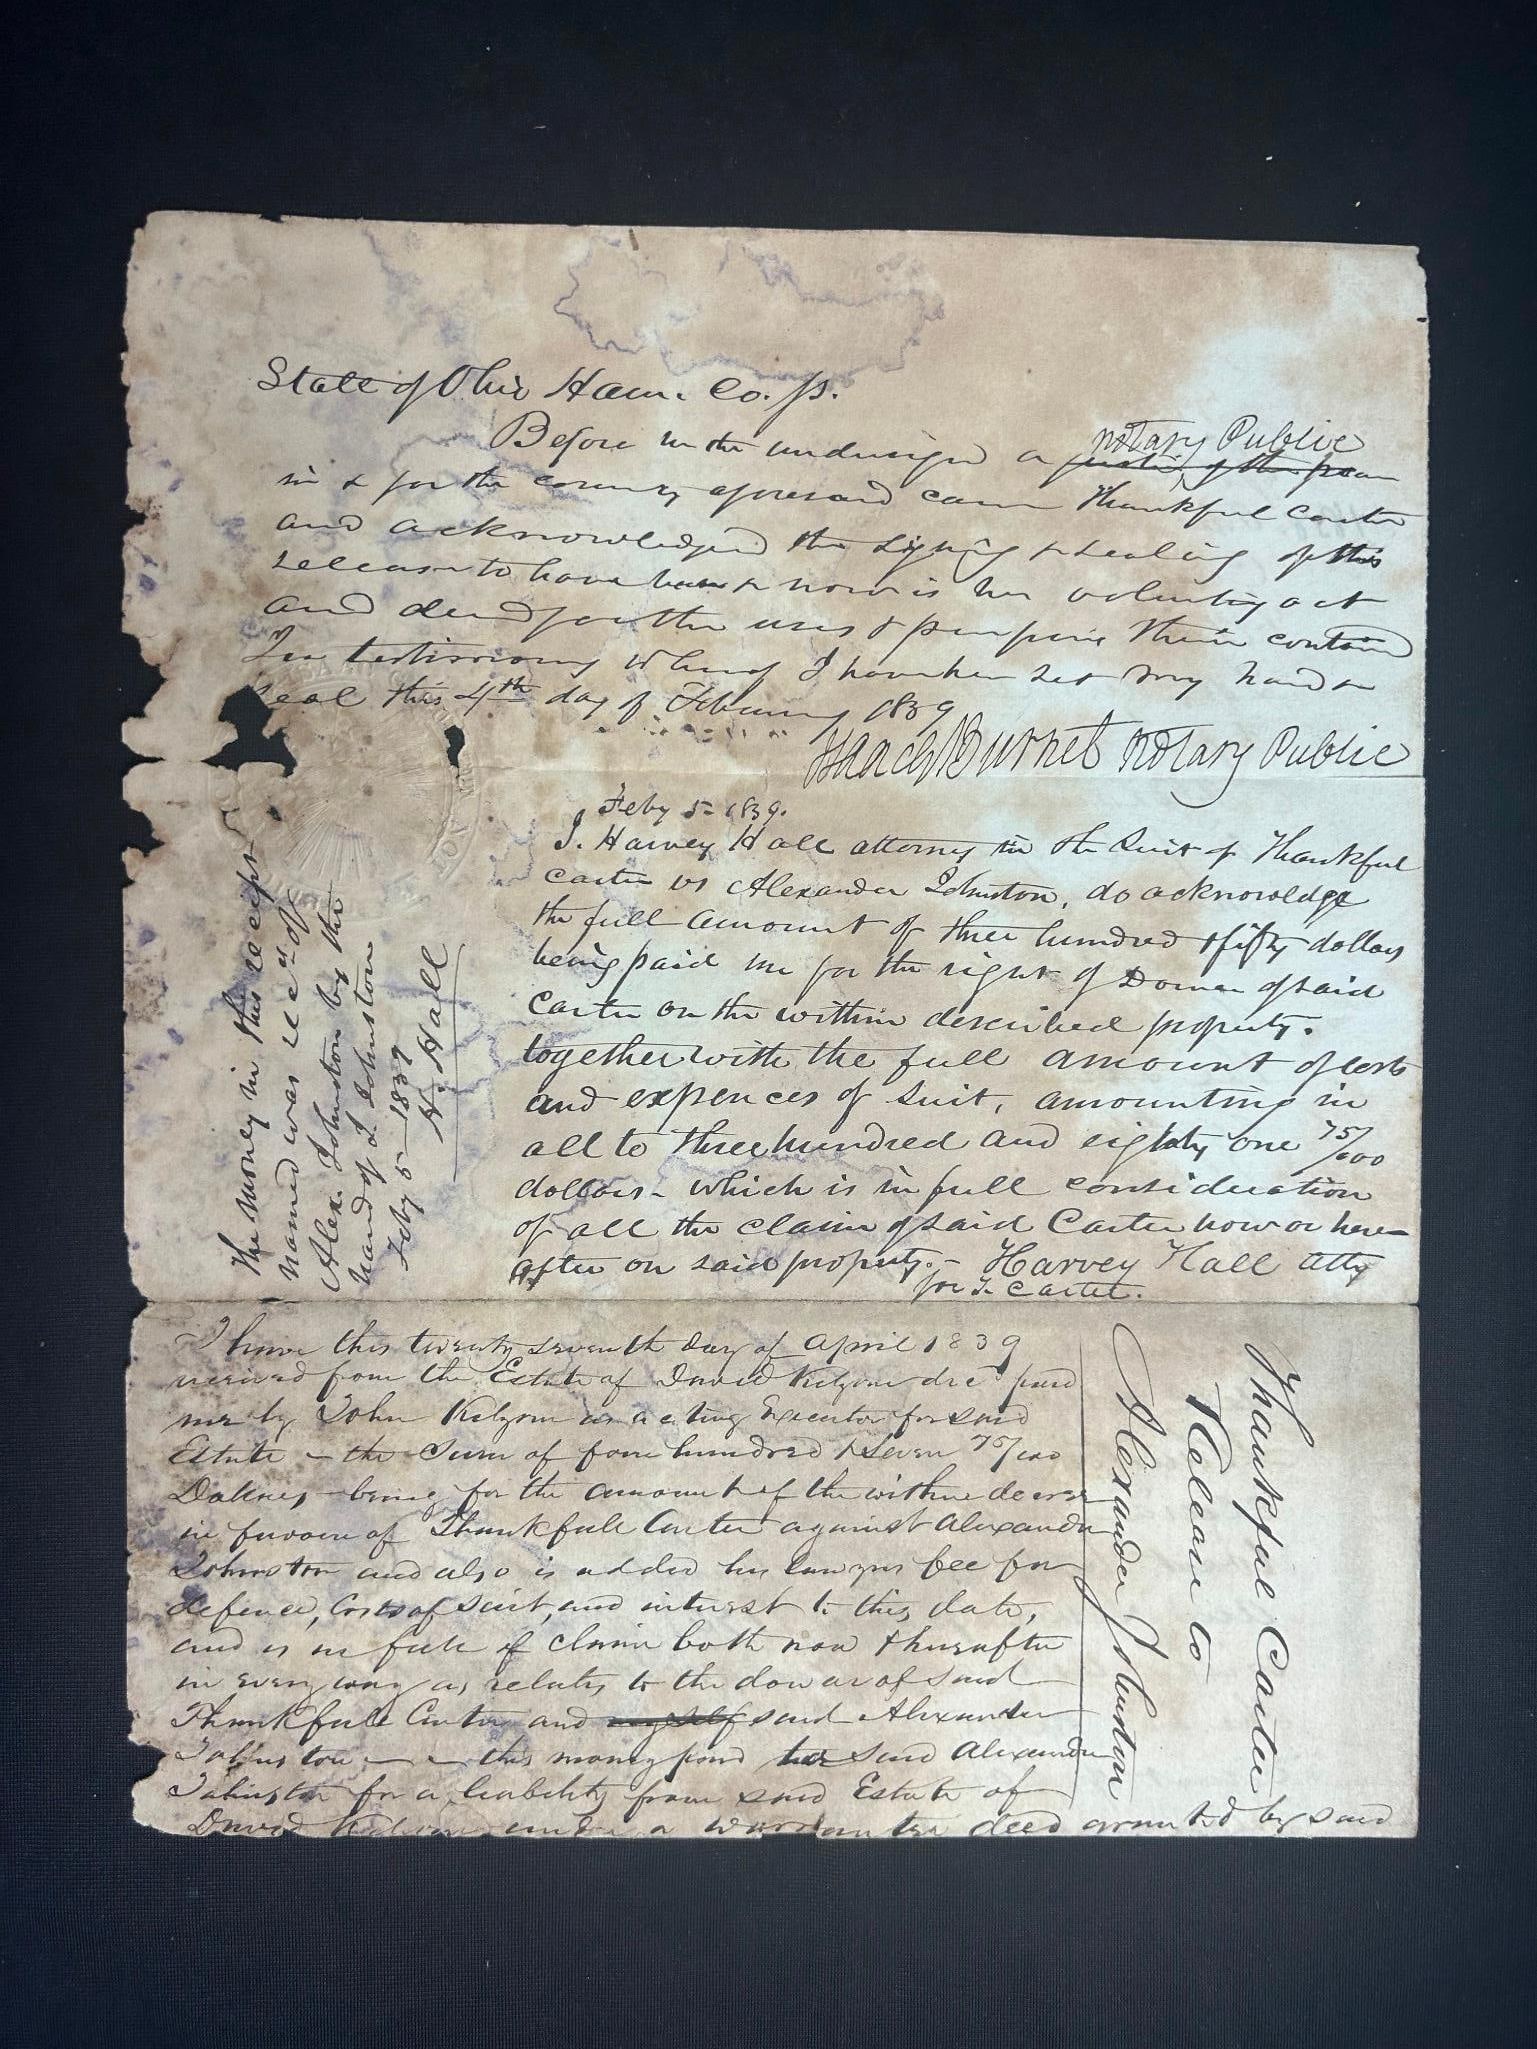 State of Ohio Ham. Co. ss.
notary Public
Before me the undersigned a justice of the peace
in & for the county aforesaid came Thankful Carter
and acknowledged the signing & sealing of this
release to have been & now is her voluntary act
and deed for the uses & purposes therein contained
In testimony whereof I have her set my hand &
seal this 4th day of February 1839
Isaac G Burnet notary Public
Feby 5- 1839.
I. Harvey Hall attorney in the suit of Thankful
Carter vs Alexander Johnston, do acknowledge
the full amount of three hundred & fifty dollars
being paid me for the right of Dower of said
Carter on the within described property.
together with the full amount of costs
and expences of suit, amounting in
all to three hundred and eighty one 75/100
dollars - which is in full consideration
of all the claim of said Carter now or here-
after on said property. - Harvey Hall atty
for T. Carter.
The money in this receipt
named was rec'd of
Alex. Johnston by the
hand of J Johnston
Feby 5 - 1839
H. Hall
I have this twenty seventh day of April 1839
received from the Estate of David Kilgour dec'd paid
me by John Kilgour as acting Executor for said
Estate - the sum of four hundred & seven 75/100
Dollars - being for the amount of the within decree
in favour of Thankfull Carter against Alexander
Johnston and also is added his lawyers fee for
defence, Costs of Suit, and interest to this date,
and is in full of claim both now & hereafter
in every way as relates to the dower of said
Thankfull Carter and myself said Alexander
Johnston - - this money paid said Alexander
Johnston for a liability from said Estate of
David Kilgour under a warrantee deed granted by said
Thankful Carter
Release to
Alexander Johnston